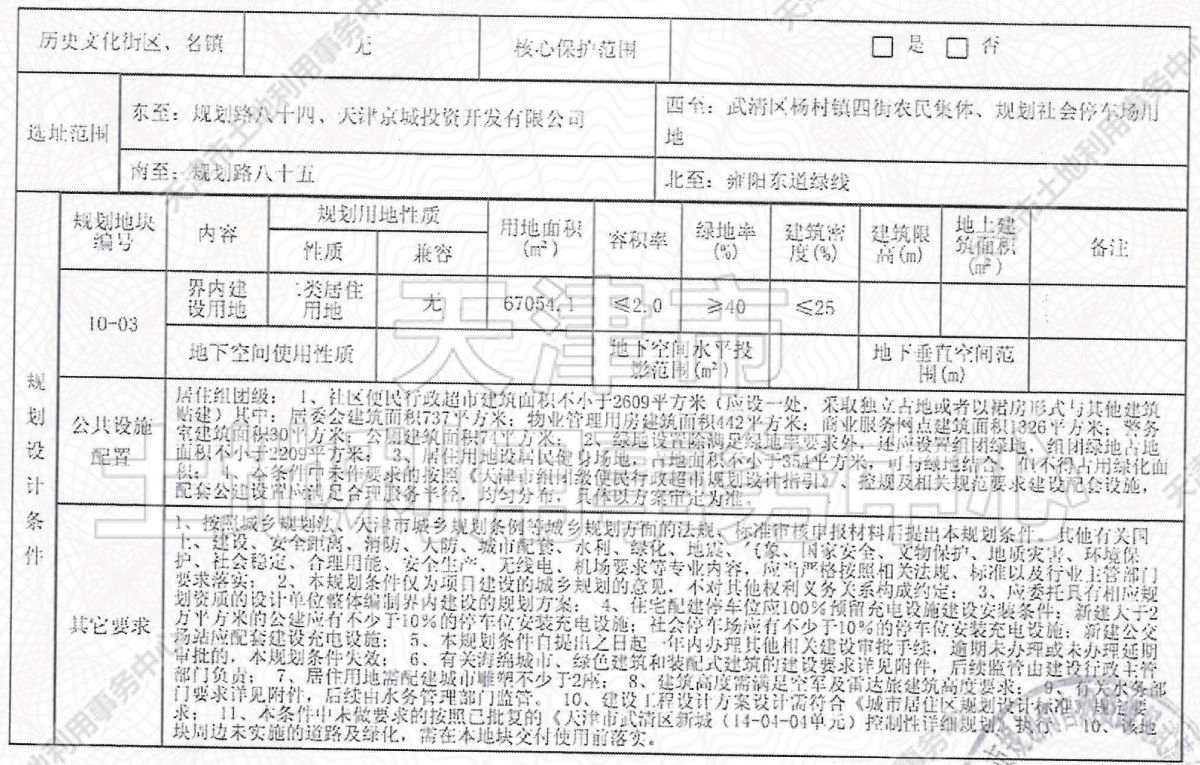 历史文化街区、名镇 无 核心保护范围 □ 是 □ 否
选址范围
东至：规划路八十四、天津京域投资开发有限公司
西至：武清区杨村镇四街农民集体、规划社会停车场用
地
南至：规划路八十五
北至：雍阳东道绿线
规划设计条件
规划地块
编号
内容
规划用地性质
性质 兼容
用地面积
(m²)
容积率
绿地率
(%)
建筑密
度(%)
建筑限
高(m)
地上建
筑面积
(m²)
备注
10-03
界内建
设用地
二类居住
用地
无
67054.1
≤2.0
≥40
≤25
地下空间使用性质
地下空间水平投
影范围(m²)
地下垂直空间范
围(m)
公共设施
配置
居住组团级： 1、社区便民行政超市建筑面积不小于2609平方米（应设一处，采取独立占地或者以裙房形式与其他建筑
贴建）其中：居委公建筑面积737平方米；物业管理用房建筑面积442平方米；商业服务网点建筑面积1326平方米；警务
室建筑面积30平方米；公园建筑面积74平方米； 2、绿地设置除满足绿地率要求外，还应设置组团绿地，组团绿地占地
面积不小于2209平方米； 3、居住用地设居民健身场地，占地面积不小于354平方米，可与绿地结合，但不得占用绿化面
积； 4、本条件中未作要求的按照《天津市组团级便民行政超市规划设计指引》、控规及相关规范要求建设配套设施，
配套公建设置应满足合理服务半径，均匀分布，具体以方案审定为准。
其它要求
1、按照城乡规划法、天津市城乡规划条例等城乡规划方面的法规、标准审核申报材料后提出本规划条件。其他有关国
土、建设、安全距离、消防、人防、城市配套、水利、绿化、地震、气象、国家安全、文物保护、地质灾害、环境保
护、社会稳定、合理用能、安全生产、无线电、机场要求等专业内容，应当严格按照相关法规、标准以及行业主管部门
要求落实； 2、本规划条件仅为项目建设的城乡规划的意见，不对其他权利义务关系构成约定； 3、应委托具有相应规
划资质的设计单位整体编制界内建设的规划方案； 4、住宅配建停车位应100%预留充电设施建设安装条件；新建大于2
万平方米的公建应有不少于10%的停车位安装充电设施；社会停车场应有不少于10%的停车位安装充电设施；新建公交
场站应配套建设充电设施； 5、本规划条件自提出之日起一年内办理其他相关建设审批手续，逾期未办理或未办理延期
审批的，本规划条件失效； 6、有关海绵城市、绿色建筑和装配式建筑的建设要求详见附件，后续监管由建设行政主管
部门负责； 7、居住用地需配建城市雕塑不少于2座； 8、建筑高度需满足空军及雷达旅建筑高度要求； 9、有关水务部
门要求详见附件，后续由水务管理部门监管。 10、建设工程设计方案设计需符合《城市居住区规划设计标准》规定要
求； 11、本条件中未做要求的按照已批复的《天津市武清区新城（14-04-04单元）控制性详细规划》执行 10、该地
块周边未实施的道路及绿化，需在本地块交付使用前落实。
天津市